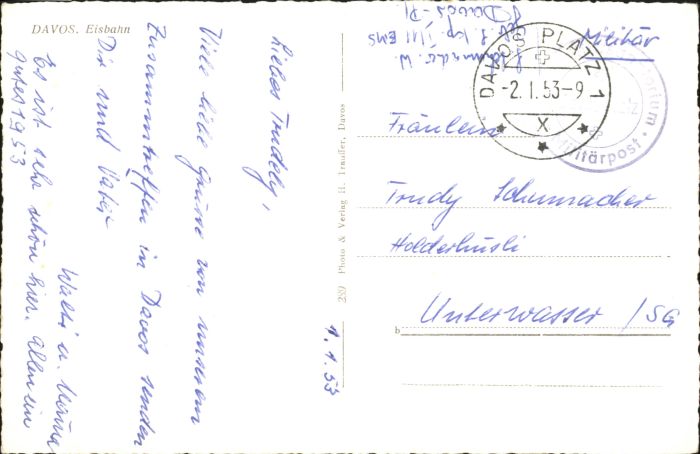 DAVOS. Eisbahn
1.1.53
Liebes Trudely,
Viele liebe Grüsse von unserem
Zusammentreffen in Davos senden
Dir und Vater
Walti u. Mama
Es ist sehr schön hier. Allen ein
gutes 1953
289 Photo & Verlag H. Trauffer, Davos
Militär
W.
Davos-Pl
DAVOS PLATZ 1
-2.I.53-9
X
Militärpost
Fräulein
Trudy Schumacher
Holderhüsli
Unterwasser /SG